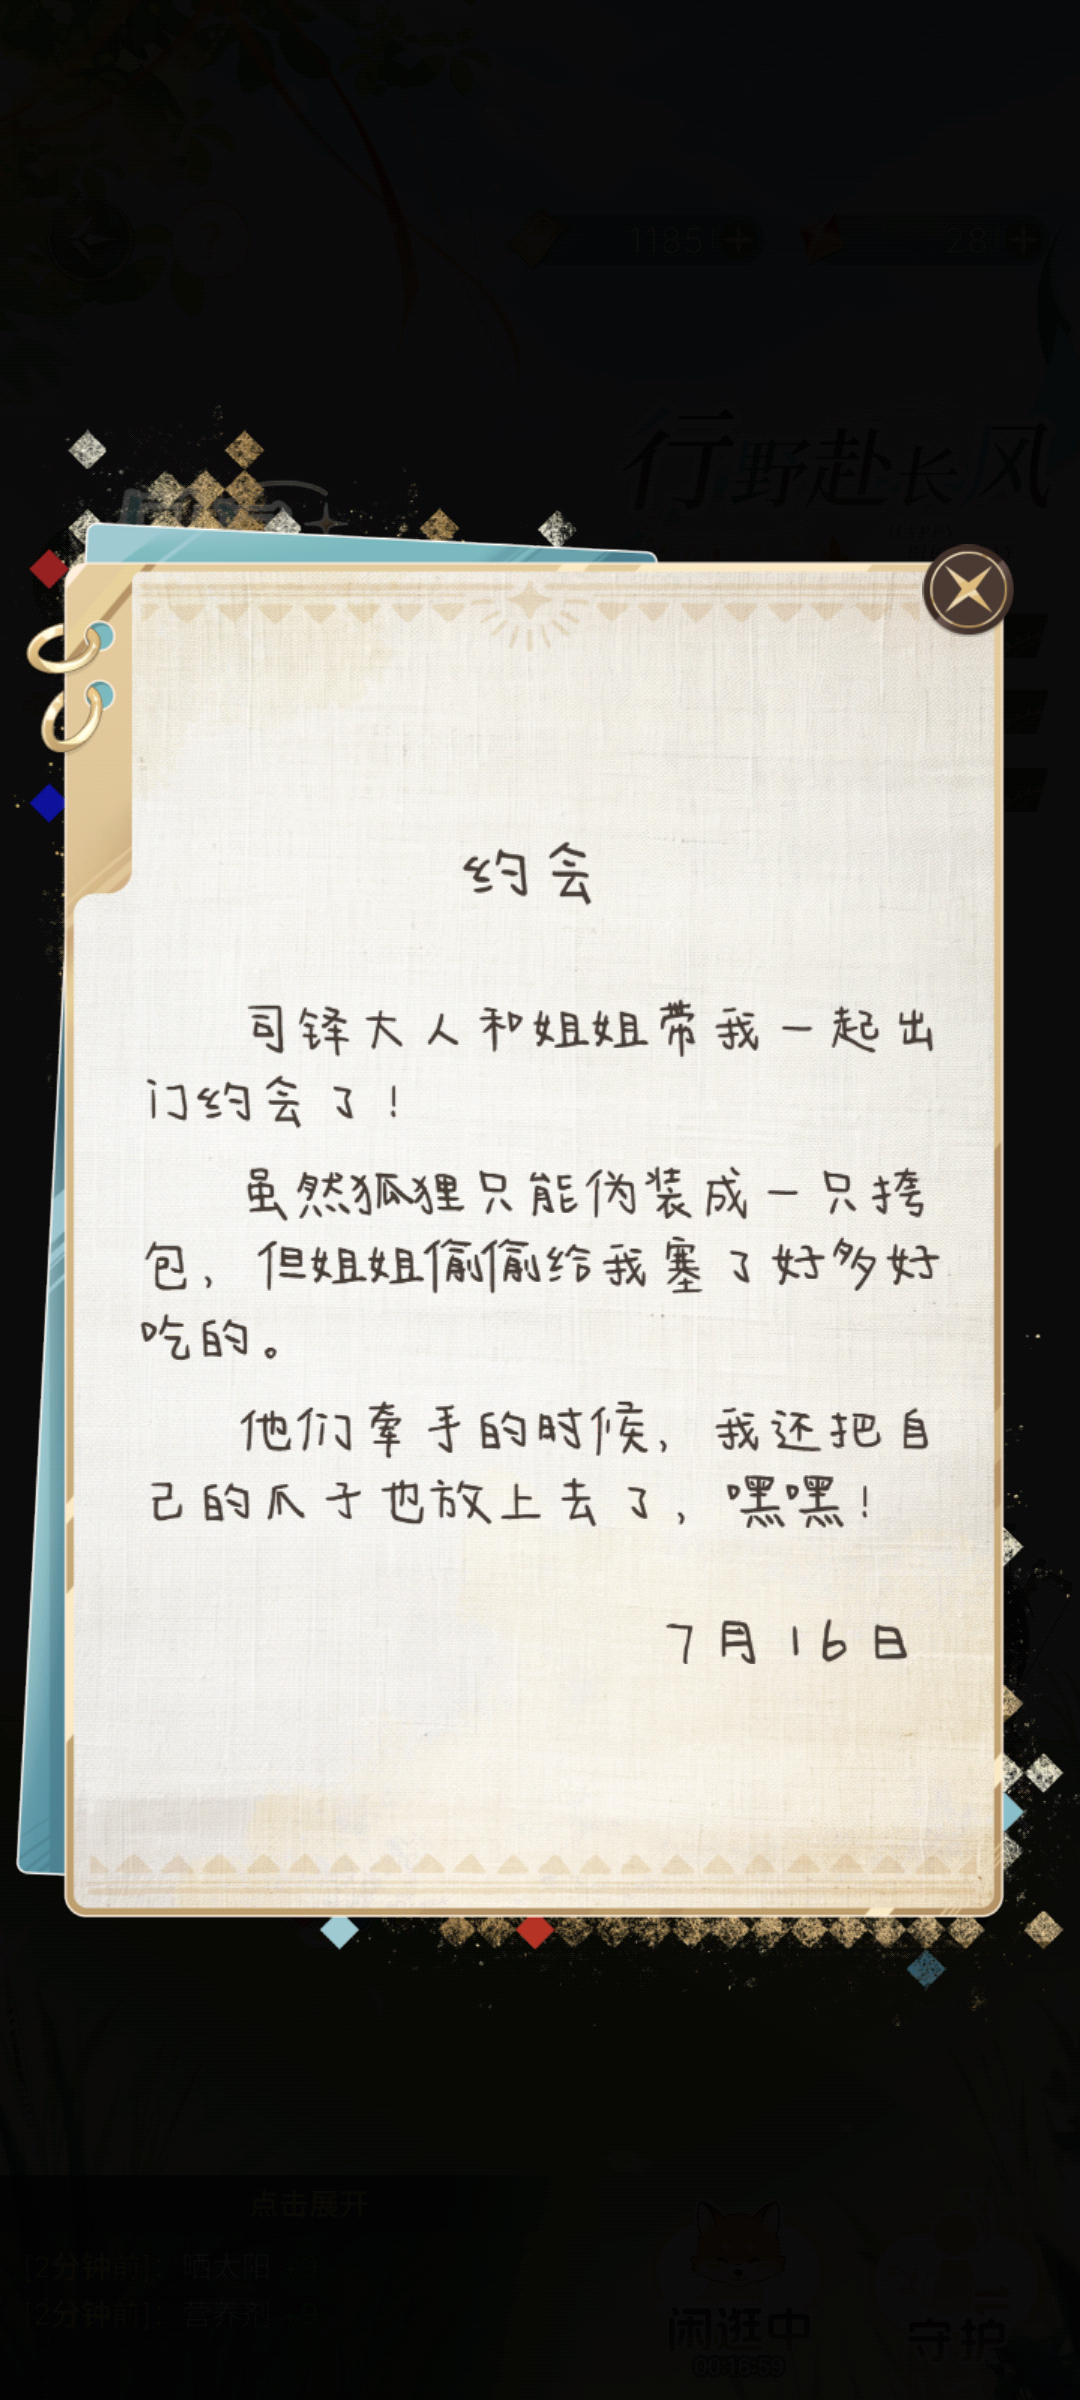 1185
28
行野赴长风
约会
司铎大人和姐姐带我一起出
门约会了！
虽然狐狸只能伪装成一只挎
包，但姐姐偷偷给我塞了好多好
吃的。
他们牵手的时候，我还把自
己的爪子也放上去了，嘿嘿！
7月16日
点击展开
[2分钟前]：晒太阳 +9
[2分钟前]：营养剂 +9
闲逛中
守护
00:16:59